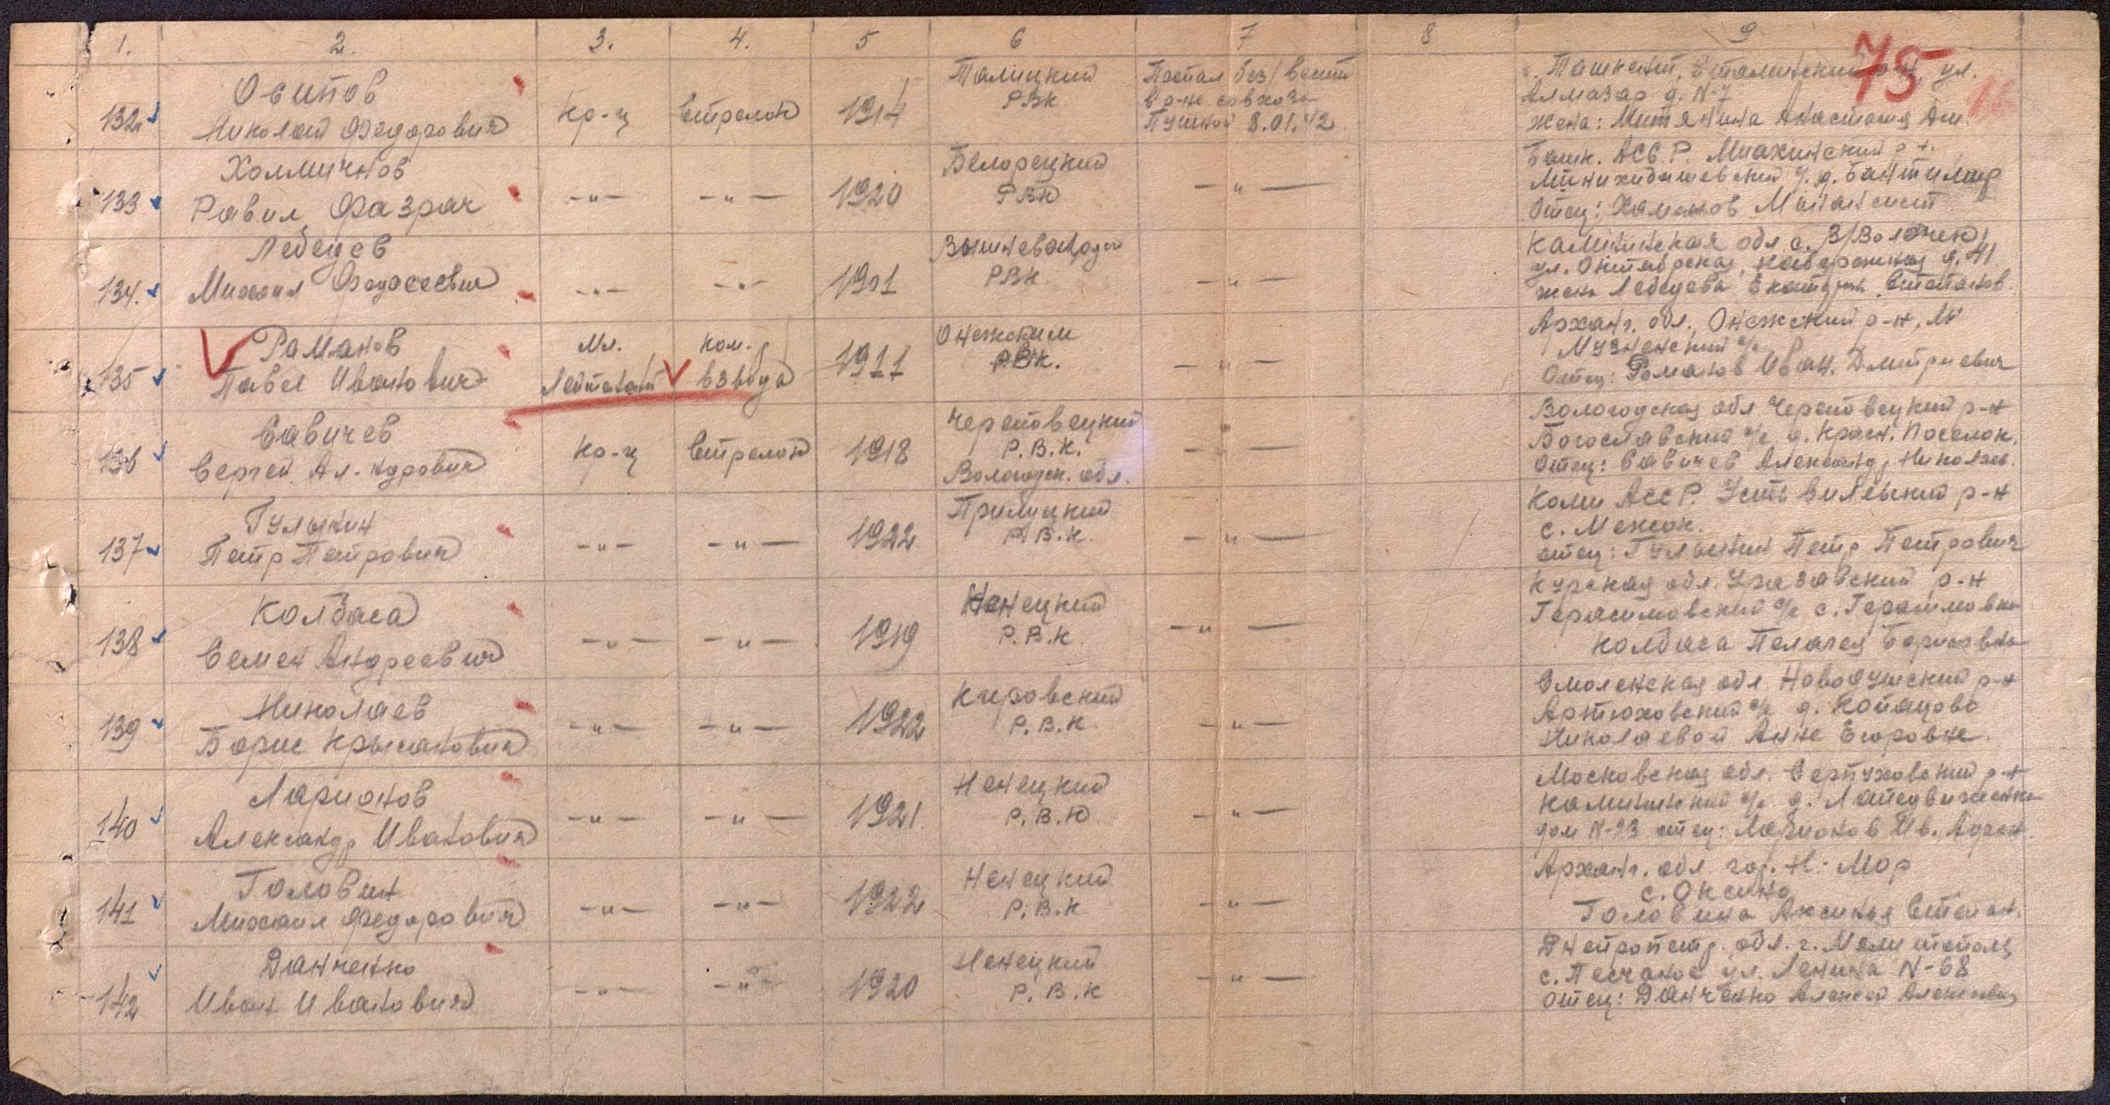 1. 2. 3. 4. 5 6 7 8 9
75
132 Осипов Николай Федорович кр-ц Стрелок 1914 Талицкий РВК Пропал без/вести в р-не совхоза Пушной 8.01.42
Ташкент, Сталинский р-н, ул.
Алмазар д. N-7
Жена: Митянина Анастасия
133 Равил 1920 Белорецкий РВК
Башк. АССР. Миахинский р-н.
Отец:
134. Лебедев Михаил 1901 РВК
Калининская обл. г. В/Волочек
ул. Октябрская, набережная д. 41
жена Лебедева Степанов.
135 Романов Павел Иванович Мл. Лейтенант ком. взвода 1911 Онежским РВК.
Арханг. обл., Онежский р-н,
Отец: Романов Иван. Дмитриевич
136 Савичев Сергей Ал-ндрович кр-ц Стрелок 1918 Череповецкий Р.В.К. Вологодск. обл.
Вологодская обл Череповецкий р-н
Богословский с/с д. Красн. Поселок.
Отец: Савичев Александр Николаев.
137 Гулынин Петр Петрович 1922 Прилуцкий Р.В.К.
Коми АССР. Усть Вымский р-н
отец: Гулынин Петр Петрович
138 Колбаса Семен Андреевич 1919 Ненецкий Р.В.К.
Курская обл. Уразовский р-н
Герасимовский с/с с. Герасимовка
Колбаса Пелагея Борисовна
139 Николаев Борис 1922 Кировский Р.В.К.
Смоленская обл. Новодугинский р-н
Артюховский с/с д.
Николаевой Анне Егоровне.
140 Ларионов Александр Иванович 1921 Ненецкий Р.В.К
Московская обл. Серпуховский р-н
дом N-23 отец: Ларионов Ив.
141 Головин Михаил Федорович 1922 Ненецкий Р.В.К
Арханг. обл. гор. Н-Мар
с. Оксино
Головина Аксинья Степан.
142 Данченко Иван Иванович 1920 Ненецкий Р.В.К
Днепропетр. обл. г. Мелитополь
с. Песчаное ул. Ленина N-68
Отец: Данченко Алексей Алексеевич